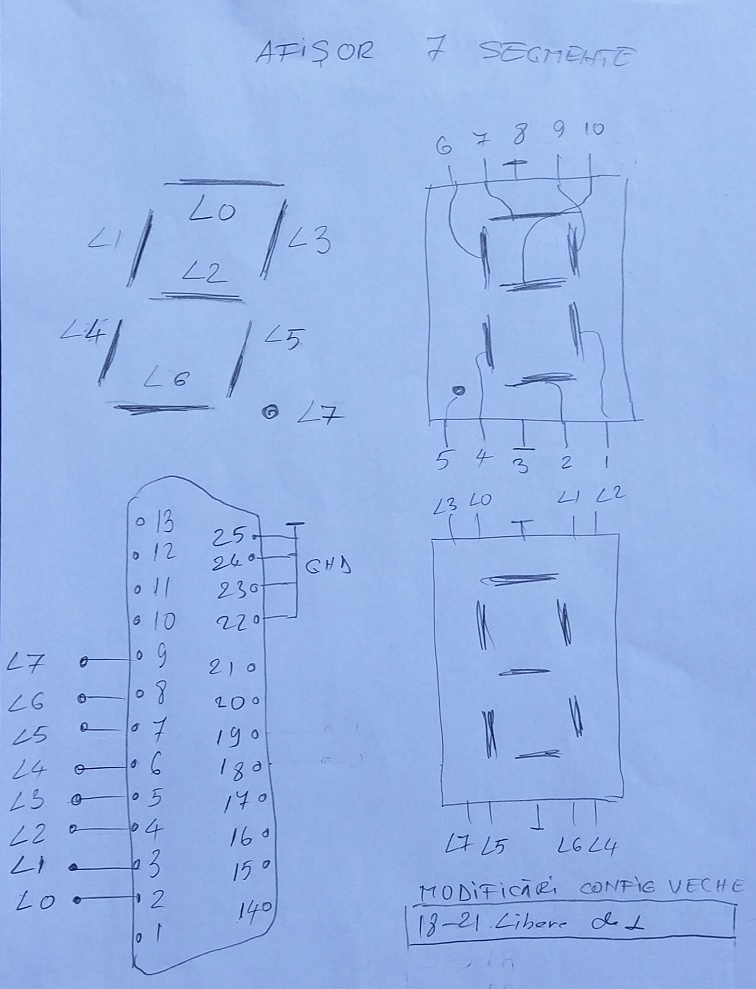 AFIȘOR 7 SEGMENTE
L0
L1 L3
L2
L4 L5
L6
L7
6 7 8 9 10
5 4 3 2 1
13 25
12 24 GND
11 23
10 22
L7 9 21
L6 8 20
L5 7 19
L4 6 18
L3 5 17
L2 4 16
L1 3 15
L0 2 14
1
L3 L0 L1 L2
L7 L5 L6 L4
MODIFICĂRI CONFIG VECHE
18-21 Libere